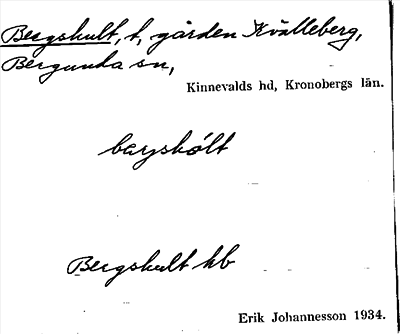 Bergshult, t, gården Kvälleberg,
Bergunda sn,
Kinnevalds hd, Kronobergs län.
bærjshólt
Bergshult hb
Erik Johannesson 1934.